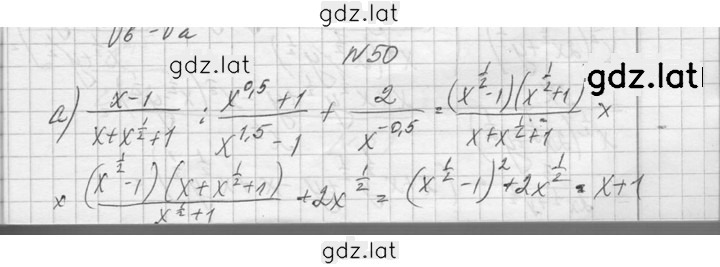 gdz.lat
√b - √a
N50
gdz.lat
gdz.lat
а) \frac{x-1}{x+x^{\frac{1}{2}}+1} : \frac{x^{0,5}+1}{x^{1,5}-1} + \frac{2}{x^{-0,5}} = \frac{(x^{\frac{1}{2}}-1)(x^{\frac{1}{2}}+1)}{x+x^{\frac{1}{2}}+1} ×
× \frac{(x^{\frac{1}{2}}-1)(x+x^{\frac{1}{2}}+1)}{x^{\frac{1}{2}}+1} + 2x^{\frac{1}{2}} = (x^{\frac{1}{2}}-1)^2 + 2x^{\frac{1}{2}} = x+1
gdz.lat